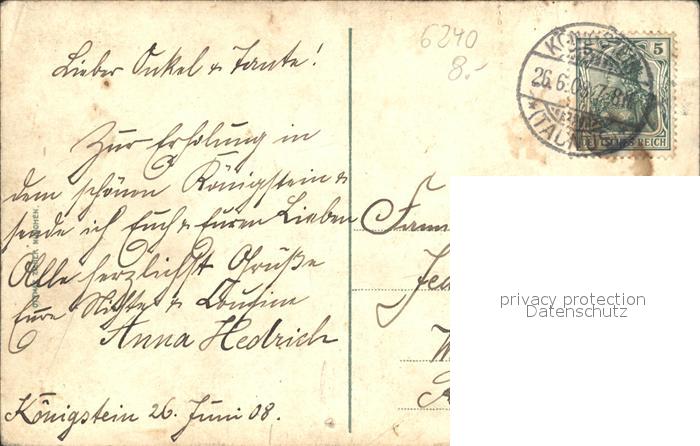 Lieber Onkel & Tante!
Zur Erholung in
dem schönen Königstein &
sende ich Euch & Euren Lieben
Alle herzlichst Grüße
Eure Nichte & Cousine
Anna Hedrich
Königstein 26. Juni 08.
6240
8.-
26.6.08
5
DEUTSCHES REICH
privacy protection
Datenschutz